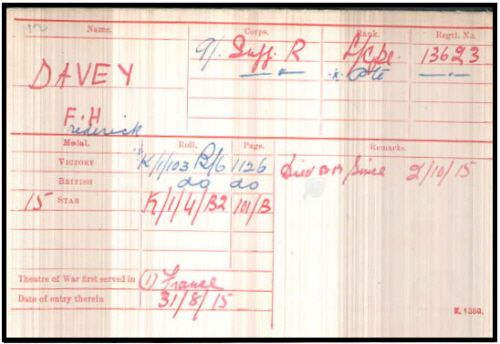 Name. Corps. Rank. Regtl. No.
9/. Suff. R L/Cpl. 13623
DAVEY
* Pte —"—
F. H
Frederick
Medal. Roll. Page. Remarks.
VICTORY K/1/103 B/6 1126 Died Since 2/10/15
BRITISH do do
15 STAR K/1/4/B2 101/B
Theatre of War first served in (1) France
Date of entry therein 31/8/15
K. 1380.